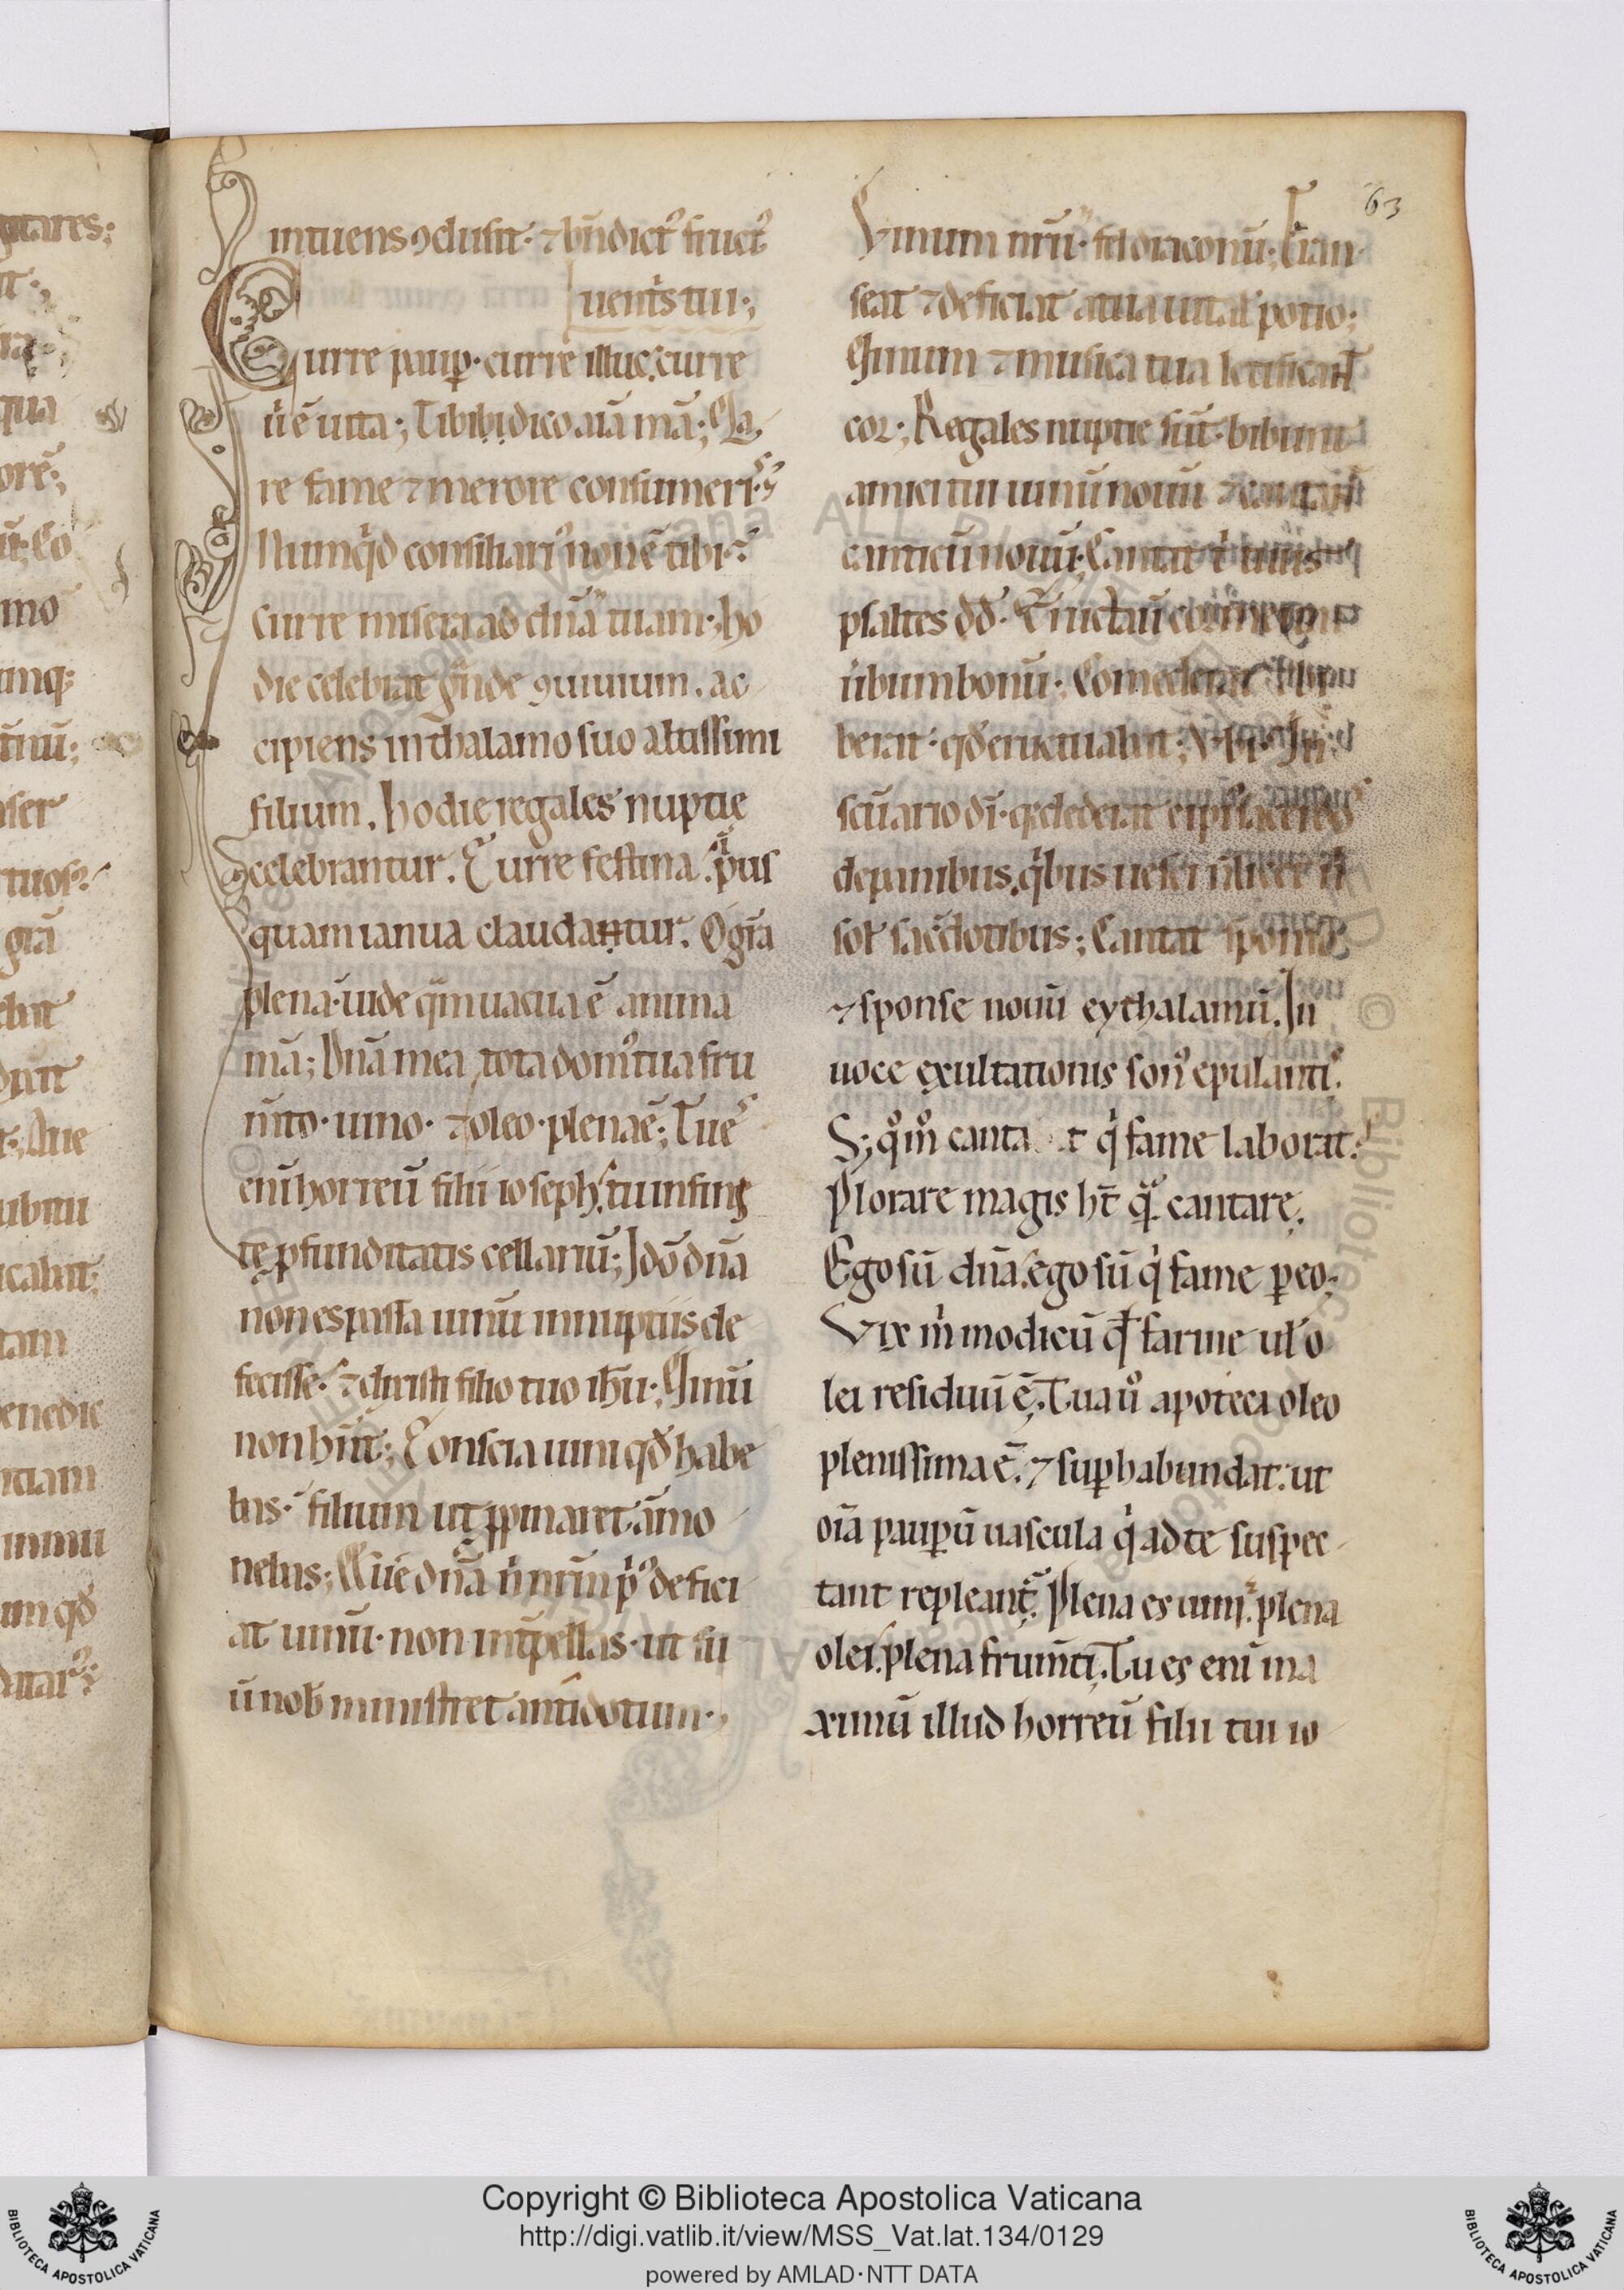 intuens ꝯclusit· ⁊ bn̄dictꝰ fructꝰ
uent's tui·;
Curre paup̲· curre illuc. curre
u'ē uita·; Tibi ibi dico aīa mā;
re fame ⁊ merore consumeris
Nunqͥd consiliariꝰ non ē tibi·?
curre misera ad dn̄ā tuam·; ho
die celebrat gͣnde ꝯuiuium. ac
cipiens in thalamo suo altissimi
filium. hodie regales nuptie
celebrantur. Curre festina. pͥus
quam ianua claudantur. O gr̄a
plena· uide qͣm uacua ē anima
mā; Dn̄a mea tota domꝰ tua fru
m̄to· uino· ⁊ oleo· plena ē; Tu es
eni horreū filii ioseph. tu insing
te ꝓfunditatis cellariū; Idō dn̄a
non es passa uinū in nuptiis de
fecisse· ⁊ christi filio tuo ih̄u·; Uinū
non hn̄t; Conscia uini qd̄ habe
bas· filium ut ꝓpinaret āmo
nebas; Aue dn̄a
at uinū· non int̄pellas· ut su
ū nob̄ ministret antidotum·,
63
Uinum nr̄ū· fel draconū; Tran
seat ⁊ deficiat a tua uital' potio;
Uinum ⁊ musica tua letificant
cor·; Regales nuptie sūt· bibunt
amici tui uinū nouū ⁊ cantant
canticū nouū; Cantat
psaltes dd̄· Eructauit cor meum
u'bum bonū·; Comederat
berat· qd̄ eructuabat; In
sc̄uario dī· q̄ dederat ei
de panibus. qͥbus uesci
sol' sac̄dotibus; Cantat sponso
⁊ sponse nouū eythalamū. In
uoce exultationis sonꝰ epulantis.
S; qͦmͦ canta t qͥ fame laborat?
Plorare magis ht̄ qͣ cantare.
Ego sū dn̄a. ego sū qͥ fame p̲eo;
Vix m̄ modicū qd̄ farine ul' o
lei residuū ē. Tua uͦ apoteca oleo
plenissima ē. ⁊ sup̲habundat. ut
oīa paup̲ū uascula qͥ ad te suspec
tant repleant̄. Plena es uini. plena
olei. plena frum̄ti. Tu es enī ma
ximū illud horreū filii tui io
Copyright © Biblioteca Apostolica Vaticana
http://digi.vatlib.it/view/MSS_Vat.lat.134/0129
powered by AMLAD·NTT DATA
BIBLIOTECA APOSTOLICA VATICANA
BIBLIOTECA APOSTOLICA VATICANA